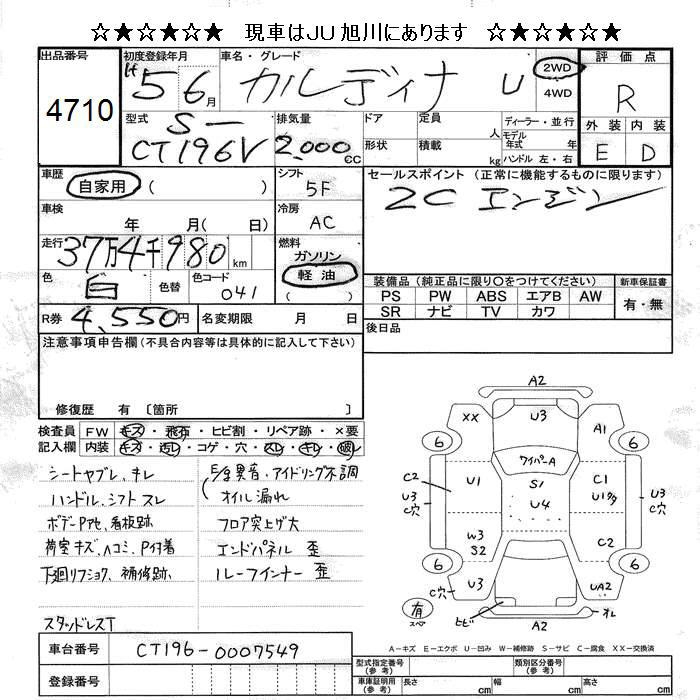 ☆★☆★☆★ 現車はJU旭川にあります ☆★☆★☆★
出品番号
4710
初度登録年月
H5 6月
車名・グレード
カルディナ U
2WD
4WD
評価点
R
外装 内装
E D
型式
S-
CT196V
排気量
2,000cc
ドア
定員
人
形状
積載
kg
ディーラー・並行
モデル年式 年
ハンドル 左・右
車歴
自家用 ( )
シフト
5F
セールスポイント (正常に機能するものに限ります)
2C エンジン
車検
年 月( 日)
冷房
AC
走行
37万4千980km
燃料
ガソリン
軽油
( )
色
白
色替
色コード
041
装備品 (純正品に限り○をつけてください)
新車保証書
PS PW ABS エアB AW
SR ナビ TV カワ
有・無
R券 4,550円
名変期限 月 日
後日品
注意事項申告欄(不具合内容等は具体的に記入して下さい)
修復歴 有 〔箇所 〕
検査員記入欄
FW キズ・飛石・ヒビ割・リペア跡・×要
内装 キズ・汚レ・コゲ・穴・スレ・キレ・破レ
シートヤブレ、キレ
ハンドル、シフトスレ
ボデーPアセ、看板跡
荷室キズ、ヘコミ、P付着
下廻リフショク、補修跡
スタッドレスT
E/g異音、アイドリング不調
オイル漏れ
フロア突上ゲ大
エンドパネル 歪
ルーフインナー 歪
A2
XX
U3
A1
6
6
ワイパーA
C2
U3
C穴
U1
S1
U4
C1
U1タタ
U3
C穴
W3
S2
C2
6
6
C穴
U3
UA2
有
スペア
ヒビ
A2
オレ
A-キズ E-エクボ U-凹み W-補修跡 S-サビ C-腐食 XX-交換済
車台番号
CT196-0007549
登録番号
型式指定番号
(参考)
類別区分番号
(参考)
車庫証明用
(参考)
長さ cm
幅 cm
高さ cm